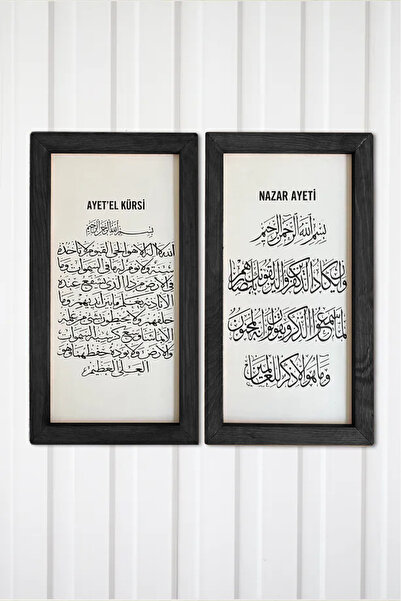 AYET'EL KÜRSİ
بسم الله الرحمن الرحيم
الله لا اله الا هو الحي القيوم لا تأخذه
سنة ولا نوم له ما في السموات وما
في الارض من ذا الذي يشفع عنده
الا باذنه يعلم ما بين ايديهم وما
خلفهم ولا يحيطون بشيء من علمه
الا بما شاء وسع كرسيه السموات
والارض ولا يؤده حفظهما وهو
العلي العظيم
NAZAR AYETİ
بسم الله الرحمن الرحيم
وان يكاد الذين كفروا ليزلقونك بابصارهم
لما سمعوا الذكر ويقولون انه لمجنون
وما هو الا ذكر للعالمين